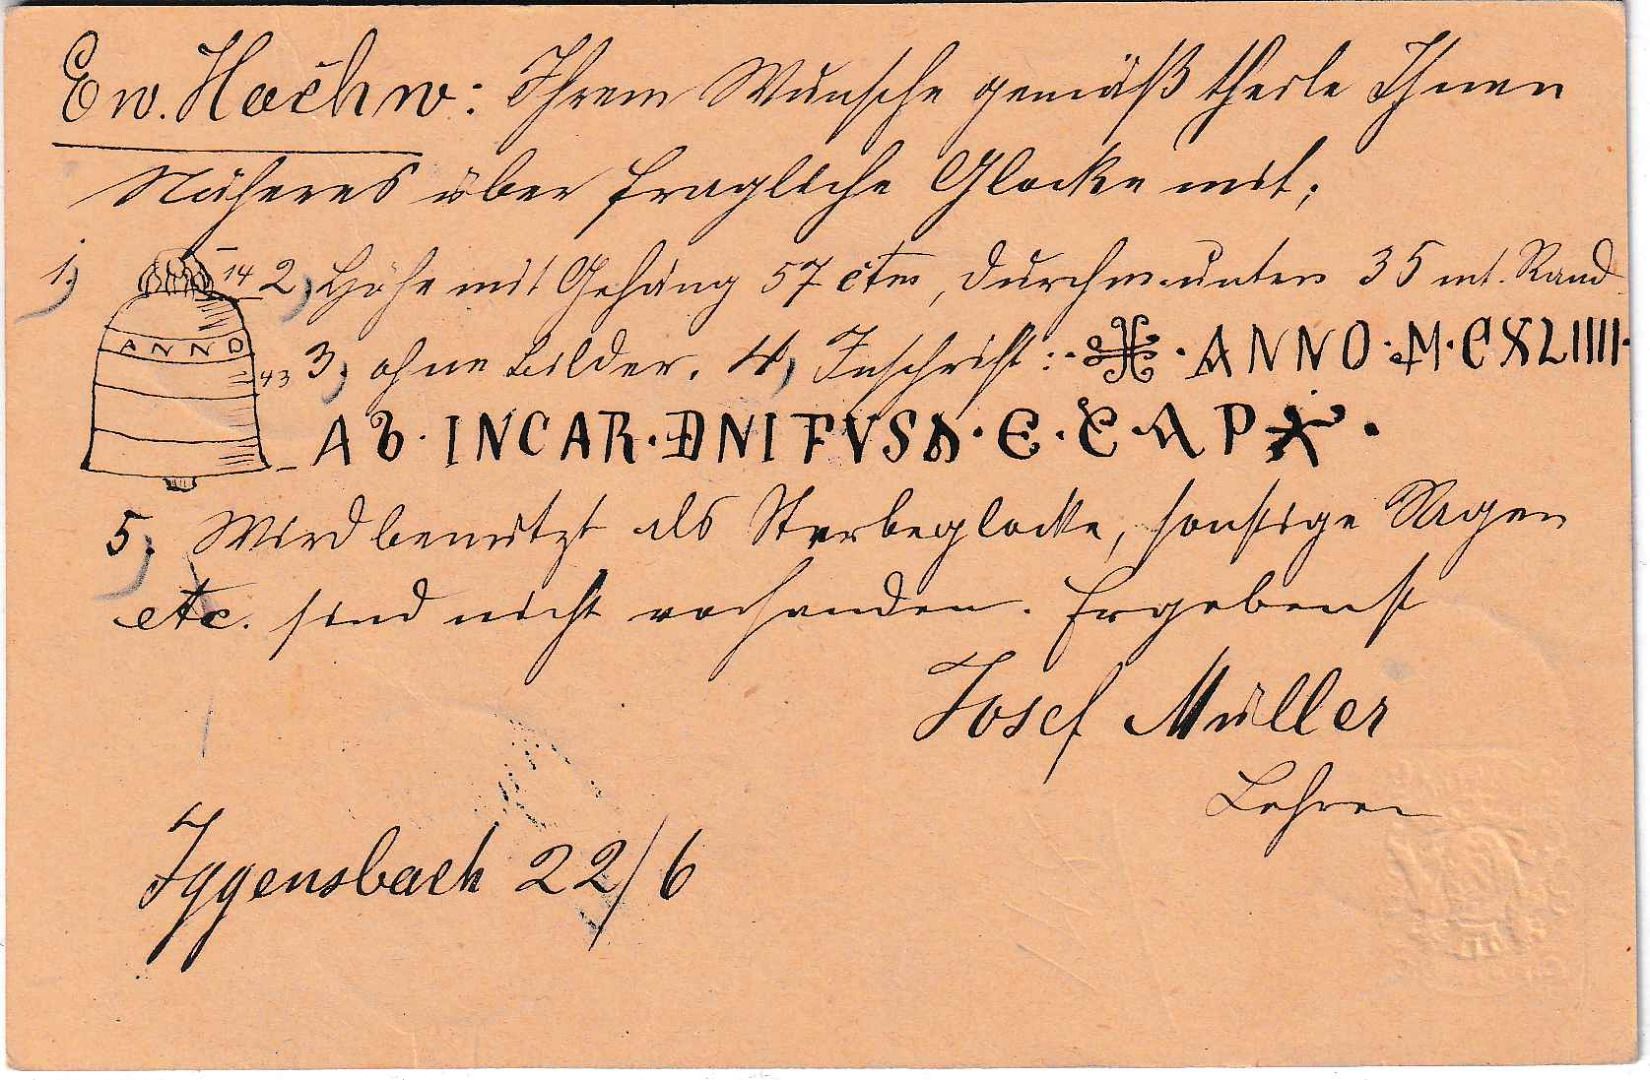 Ew. Hochw: Ihrem Wunsche gemäß theile Ihnen
Näheres über fragliche Glocke mit;
1) 14 2) Höhe mit Gehäng 57 ctm, Durchm. unten 35 mt. Rand
ANNO 43 3) ohne Bilder. 4) Inschrift: · ANNO · M · CXLIIII ·
AB · INCAR · DNI FVSA · E · C · A P
5) Wird benützt als Sterbeglocke, sonstige Sagen
etc. sind nicht vorhanden. Ergebenst
Josef Müller
Lehrer
Iggensbach 22/6